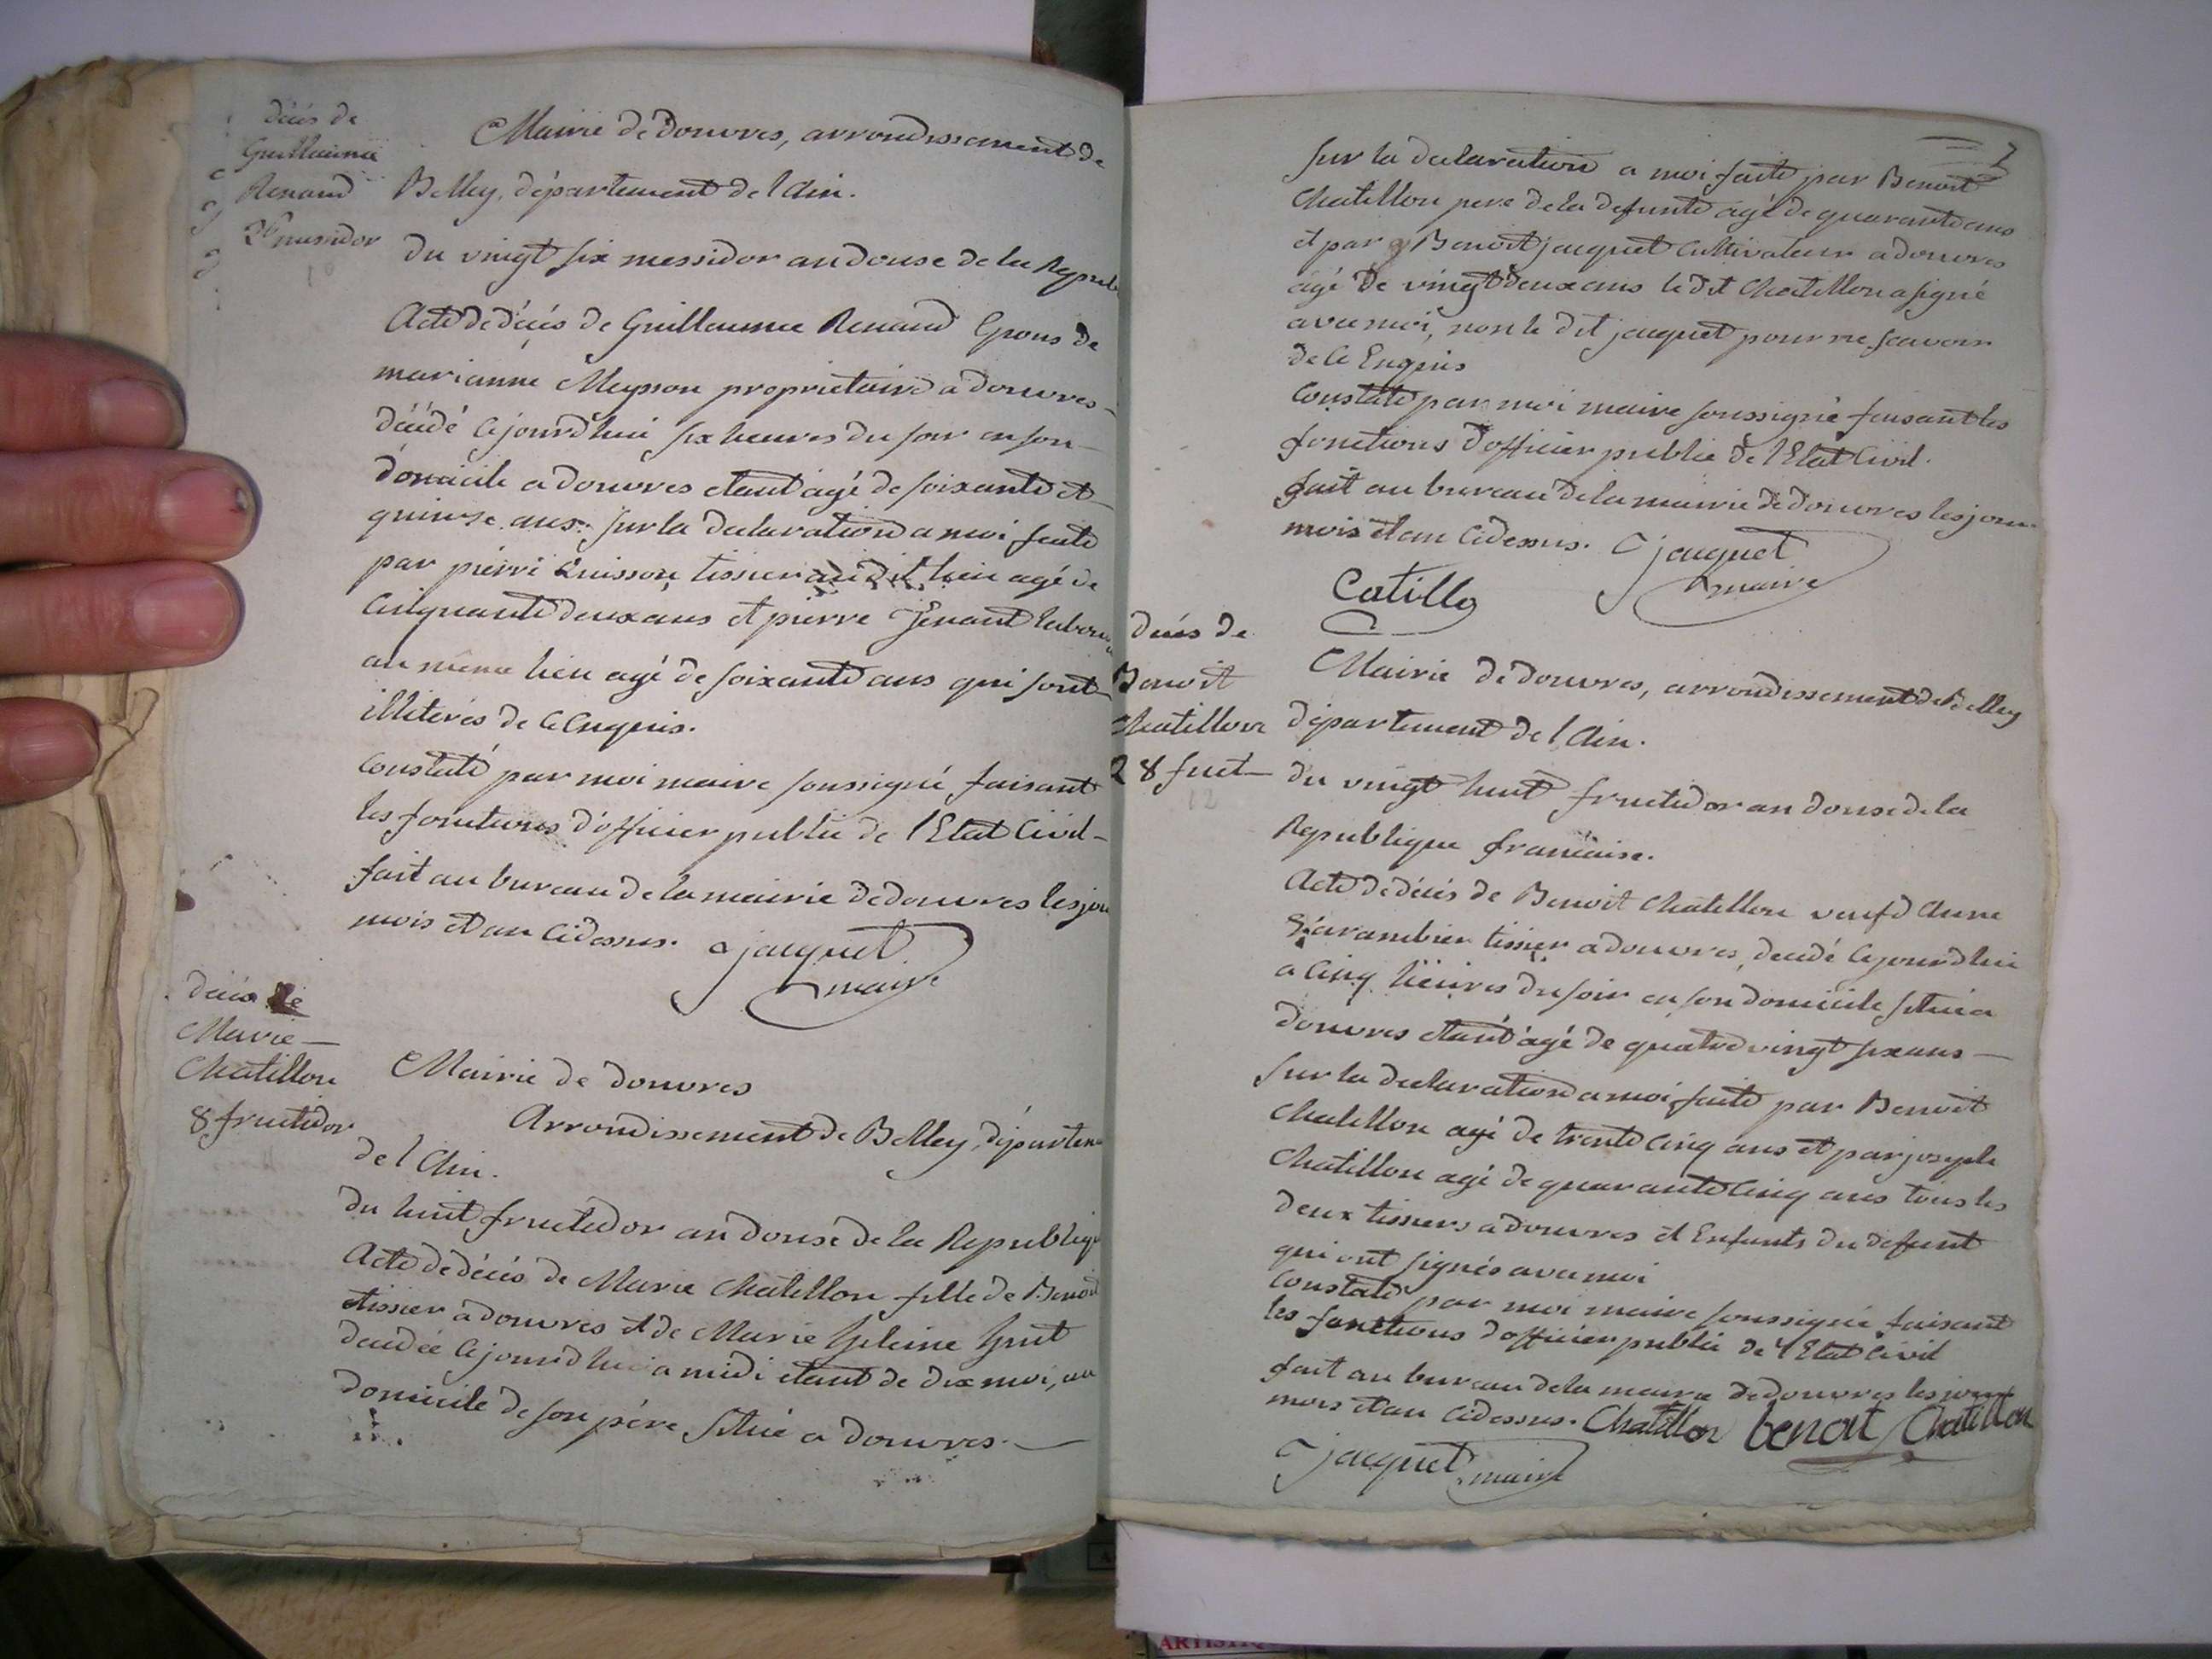 décés de
Guillaume
Renaud
26 messidor
Mairie de douvres, arrondissement de
Belley, département de l'Ain.
du vingt six messidor an douse de la Republi
Acte de décés de Guillaume Renaud Epous de
marianne Meysson proprietaire a douvres-
décédé cejourdhui six heures du soir en son-
domicile a douvres etant agé de soixante et
quinse ans. sur la declaration a moi faite
par pierre Quisson tissier au dit lieu agé de
cinquante deux ans et pierre Jenant labour
au même lieu agé de soixante ans qui sont
illiterés de ce enquis.
Constaté par moi maire soussigné faisant
les fonctions d'officier public de l'Etat Civil-
fait au bureau de la mairie de douvres les jou
mois et an cidessus. jacquet
maire
décés de
Marie-
Chatillon
8 fructidor
Mairie de douvres
Arrondissement de Belley, départem
de l'Ain.
du huit fructidor an douse de la Republiq
Acte de décés de Marie Chatillon fille de Benoit
tissier a douvres et de Marie
decedée cejourdhui a midi etant de dix moi, au
domicile de son père situé a douvres.-
sur la declaration a moi faite par Benoit
Chatillon pere de la defunte agé de quarante ans
et par Benoit jacquet cultivateur a douvres
agé de vingt deux ans le dit Chatillon a signé
avec moi, non le dit jacquet pour ne scavoir
de ce Enquis
Constaté par moi maire soussigné faisant les
fonctions d'officier public de l'Etat Civil.
fait au bureau de la mairie de douvres les jour
mois et an cidessus. jacquet
maire
Catillo
decés de
Benoit
Chatillon
28 fruct-
12
Mairie de douvres, arrondissement de Belley
département de l'Ain.
du vingt huit fructidor an douse de la
Republique francaise.
Acte de décés de Benoit Chatillon veuf d'Anne
tissier a douvres, decedé cejourdhui
a cinq heures du soir en son domicile situé a
douvres etant agé de quatre vingt six ans-
sur la declaration a moi faite par Benoit
Chatillon agé de trente cinq ans et par joseph
Chatillon agé de quarante cinq ans tous les
deux tissiers a douvres et Enfants du defunt
qui ont signés avec moi
Constaté par moi maire soussigné faisant
les fonctions d'officier public de l'Etat Civil
fait au bureau de la mairie de douvres les jour
mois et an cidessus. Chatillon benoit Chatillon
jacquet maire
ARTISTIQ